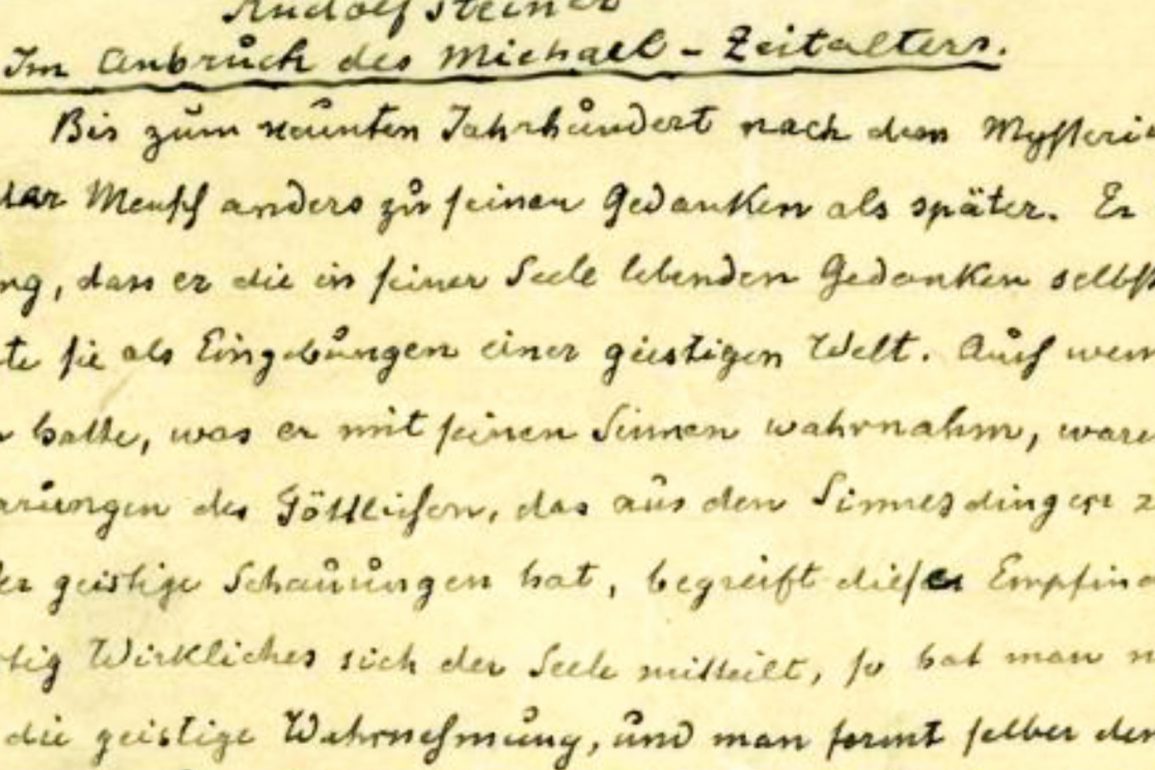 Rudolf Steiner
Im Anbruch des Michael - Zeitalters.
Bis zum neunten Jahrhundert nach dem Mysteri
der Mensch anders zu seinen Gedanken als später. Er
ng, dass er die in seiner Seele lebenden Gedanken selbst
te sie als Eingebungen einer geistigen Welt. Auch wenn
hatte, was er mit seinen Sinnen wahrnahm, ware
arungen des Göttlichen, das aus den Sinnesdingen z
er geistige Schauungen hat, begreift diese Empfin
tig Wirkliches sich der Seele mitteilt, so hat man n
die geistige Wahrnehmung, und man formt selber den